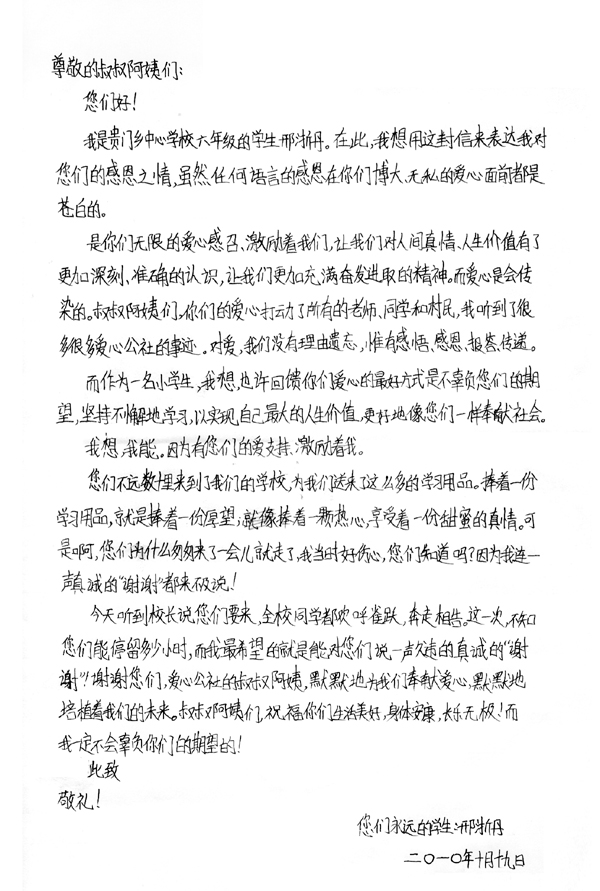 尊敬的叔叔阿姨们:
您们好!
我是贵门乡中心学校六年级的学生邢浙丹。在此,我想用这封信来表达我对
您们的感恩之情,虽然任何语言的感恩在你们博大、无私的爱心面前都是
苍白的。
是你们无限的爱心感召、激励着我们,让我们对人间真情、人生价值有了
更加深刻、准确的认识,让我们更加充满奋发进取的精神。而爱心是会传
染的。叔叔阿姨们,你们的爱心打动了所有的老师、同学和村民,我听到了很
多很多爱心公社的事迹。对爱,我们没有理由遗忘,惟有感悟、感恩、报答、传递。
而作为一名小学生,我想,也许回馈你们爱心的最好方式是不辜负您们的期
望,坚持不懈地学习,以实现自己最大的人生价值,更好地像您们一样奉献社会。
我想,我能。因为有您们的爱支持、激励着我。
您们不远数里来到了我们的学校,为我们送来了这么多的学习用品。捧着一份
学习用品,就是捧着一份厚望,就像捧着一颗热心,享受着一份甜蜜的真情。可
是啊,您们为什么匆匆来了一会儿就走了,我当时好伤心,您们知道吗?因为我连一
声真诚的“谢谢”都来不及说!
今天听到校长说您们要来,全校同学都欢呼雀跃,奔走相告。这一次,不知
您们能停留多少小时,而我最希望的就是能对您们说一声久违的真诚的“谢
谢”!谢谢您们,爱心公社的叔叔阿姨,默默地为我们奉献爱心,默默地
培植着我们的未来。叔叔阿姨们,祝福你们生活美好,身体安康,长乐无极!而
我一定不会辜负你们的期望的!
此致
敬礼!
您们永远的学生:邢浙丹
二〇一〇年十月十九日